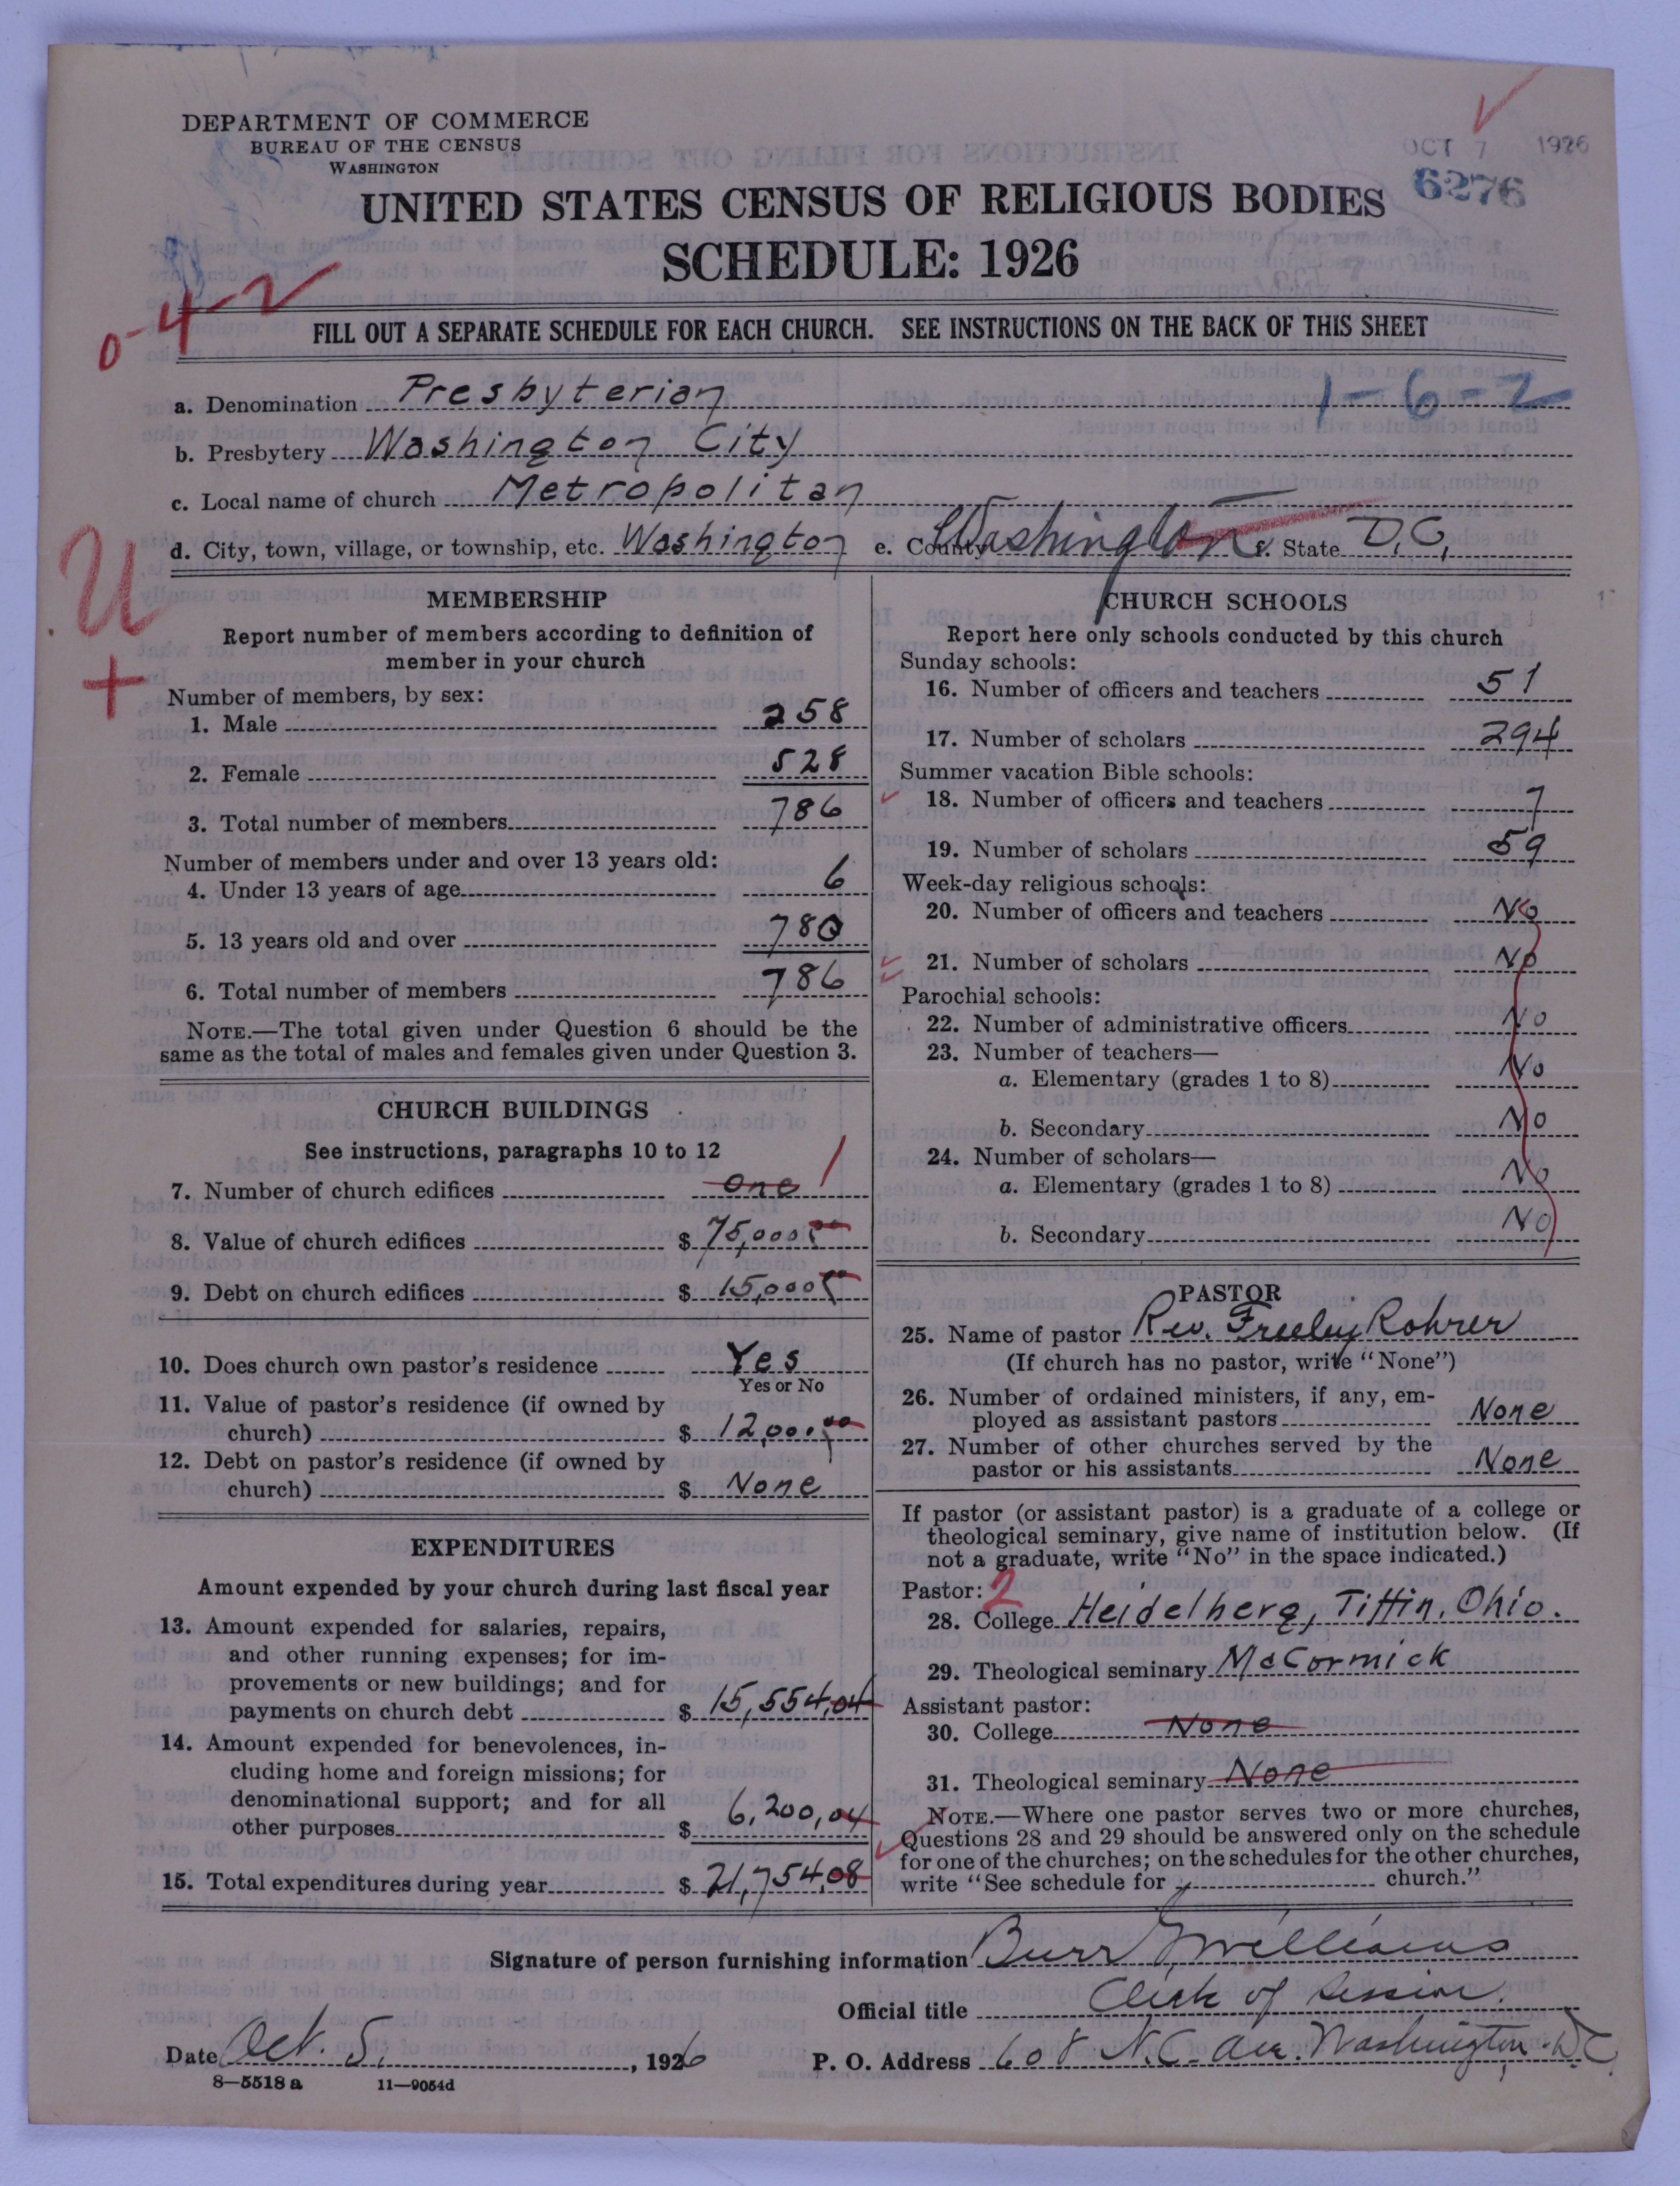 DEPARTMENT OF COMMERCE
BUREAU OF THE CENSUS
WASHINGTON
OCT 7 1926
6276
UNITED STATES CENSUS OF RELIGIOUS BODIES
SCHEDULE: 1926
0-42
FILL OUT A SEPARATE SCHEDULE FOR EACH CHURCH. SEE INSTRUCTIONS ON THE BACK OF THIS SHEET
1-6-2
a. Denomination Presbyterian
b. Presbytery Washington City
c. Local name of church Metropolitan
d. City, town, village, or township, etc. Washington e. County Washington f. State D.C.
U
+
MEMBERSHIP
Report number of members according to definition of
member in your church
Number of members, by sex:
1. Male 258
2. Female 528
3. Total number of members 786
Number of members under and over 13 years old:
4. Under 13 years of age 6
5. 13 years old and over 780
6. Total number of members 786
NOTE.—The total given under Question 6 should be the
same as the total of males and females given under Question 3.
CHURCH BUILDINGS
See instructions, paragraphs 10 to 12
7. Number of church edifices One 1
8. Value of church edifices $ 75,000 00
9. Debt on church edifices $ 15,000 00
10. Does church own pastor's residence Yes
Yes or No
11. Value of pastor's residence (if owned by
church) $ 12,000 00
12. Debt on pastor's residence (if owned by
church) $ None
EXPENDITURES
Amount expended by your church during last fiscal year
13. Amount expended for salaries, repairs,
and other running expenses; for im-
provements or new buildings; and for
payments on church debt $ 15,554.04
14. Amount expended for benevolences, in-
cluding home and foreign missions; for
denominational support; and for all
other purposes $ 6,200,04
15. Total expenditures during year $ 21,754.08
CHURCH SCHOOLS
Report here only schools conducted by this church
Sunday schools:
16. Number of officers and teachers 51
17. Number of scholars 294
Summer vacation Bible schools:
18. Number of officers and teachers 7
19. Number of scholars 59
Week-day religious schools:
20. Number of officers and teachers No
21. Number of scholars No
Parochial schools:
22. Number of administrative officers No
23. Number of teachers—
a. Elementary (grades 1 to 8) No
b. Secondary No
24. Number of scholars—
a. Elementary (grades 1 to 8) No
b. Secondary No
PASTOR
25. Name of pastor Rev. Freeley Rohrer
(If church has no pastor, write "None")
26. Number of ordained ministers, if any, em-
ployed as assistant pastors None
27. Number of other churches served by the
pastor or his assistants None
If pastor (or assistant pastor) is a graduate of a college or
theological seminary, give name of institution below. (If
not a graduate, write "No" in the space indicated.)
Pastor: 2
28. College Heidelberg, Tiffin, Ohio.
29. Theological seminary McCormick
Assistant pastor:
30. College None
31. Theological seminary None
NOTE.—Where one pastor serves two or more churches,
Questions 28 and 29 should be answered only on the schedule
for one of the churches; on the schedules for the other churches,
write "See schedule for church."
Signature of person furnishing information Burr Williams
Official title Clerk of Session.
Date Oct. 5, 1926 P. O. Address 608 N.C. Ave. Washington, D.C.
8—5518 a 11—9054d